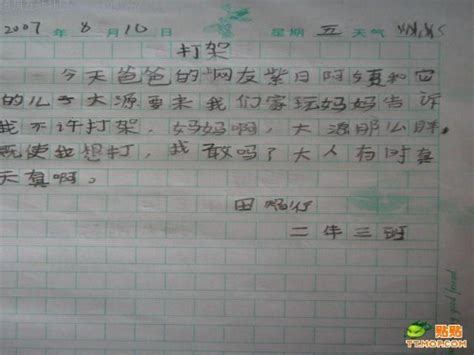 2007年8月10日 星期五 天气
打架
今天爸爸的"网友紫日阿姨和它
的儿子大源要来我们家玩妈妈告诉
我不许打架,妈妈啊,大源那么胖,
既使我想打,我敢吗?大人有时真
天真啊。
田 行
二年三班
贴贴
TT.MOP.COM